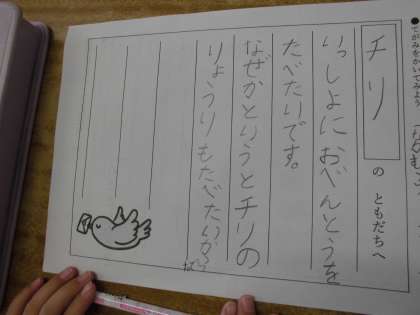 ●てがみをかいてみよう
チリ の ともだちへ
いっしょに おべんとうを
たべたいです。
なぜかというとチリの
りょうりもたべたいから